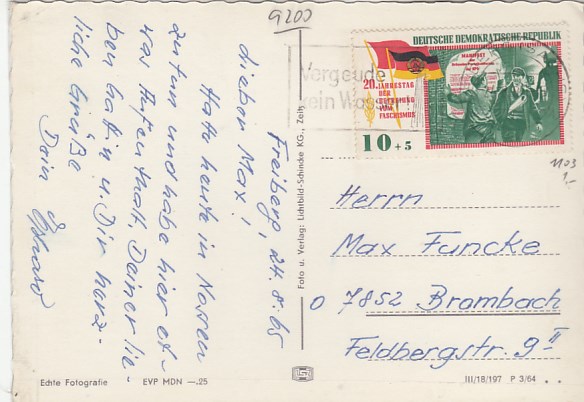 9200
Freiberg, 24.8.65
Lieber Max!
Hatte heute in Nossen
zu tun und habe hier et-
was Aufenthalt. Deiner lie-
ben Gattin u. Dir herz-
liche Grüße
Dein
DEUTSCHE DEMOKRATISCHE REPUBLIK
20. JAHRESTAG
DER
BEFREIUNG
VOM
FASCHISMUS
10+5
Vergeude
kein Wasser
1103
1,-
Herrn
Max Funcke
O 7852 Brombach
Feldbergstr. 9 II
Foto u. Verlag: Lichtbild-Schincke KG., Zeitz
Echte Fotografie EVP MDN —.25
III/18/197 P 3/64